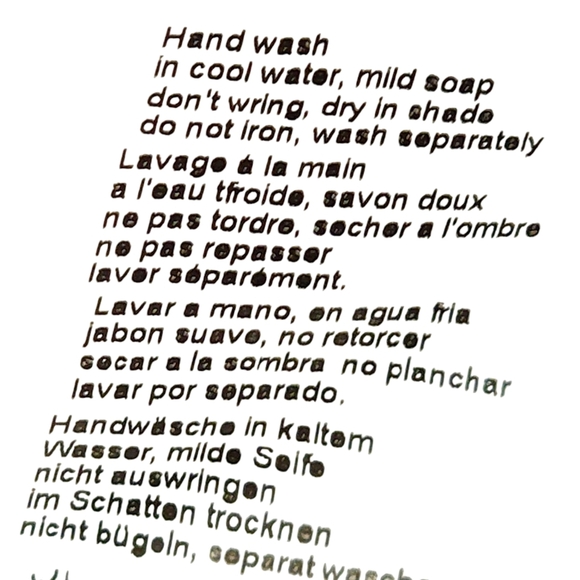 Hand wash
in cool water, mild soap
don't wring, dry in shade
do not iron, wash separately
Lavage á la main
a l'eau tfroide, savon doux
ne pas tordre, secher a l'ombre
ne pas repasser
laver séparément.
Lavar a mano, en agua fria
jabon suave, no retorcer
secar a la sombra no planchar
lavar por separado.
Handwäsche in kaltem
Wasser, milde Seife
nicht auswringen
im Schatten trocknen
nicht bügeln, separat